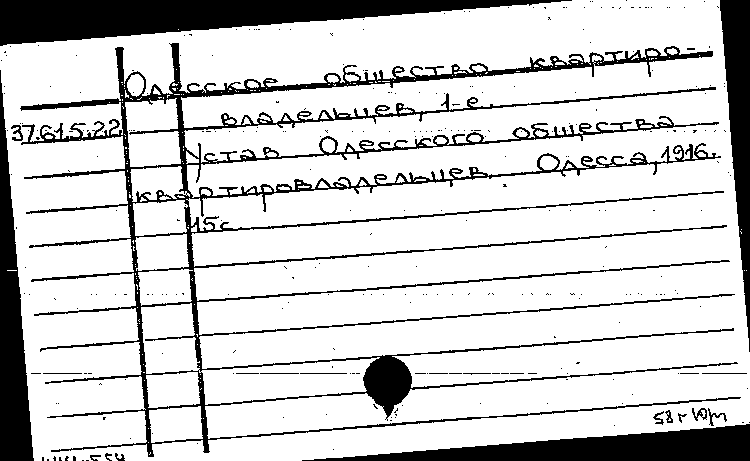 Одесское общество квартиро-
владельцев, 1-е.
37.615.22
Устав Одесского общества
квартировладельцев. Одесса, 1916.
15с.
58г